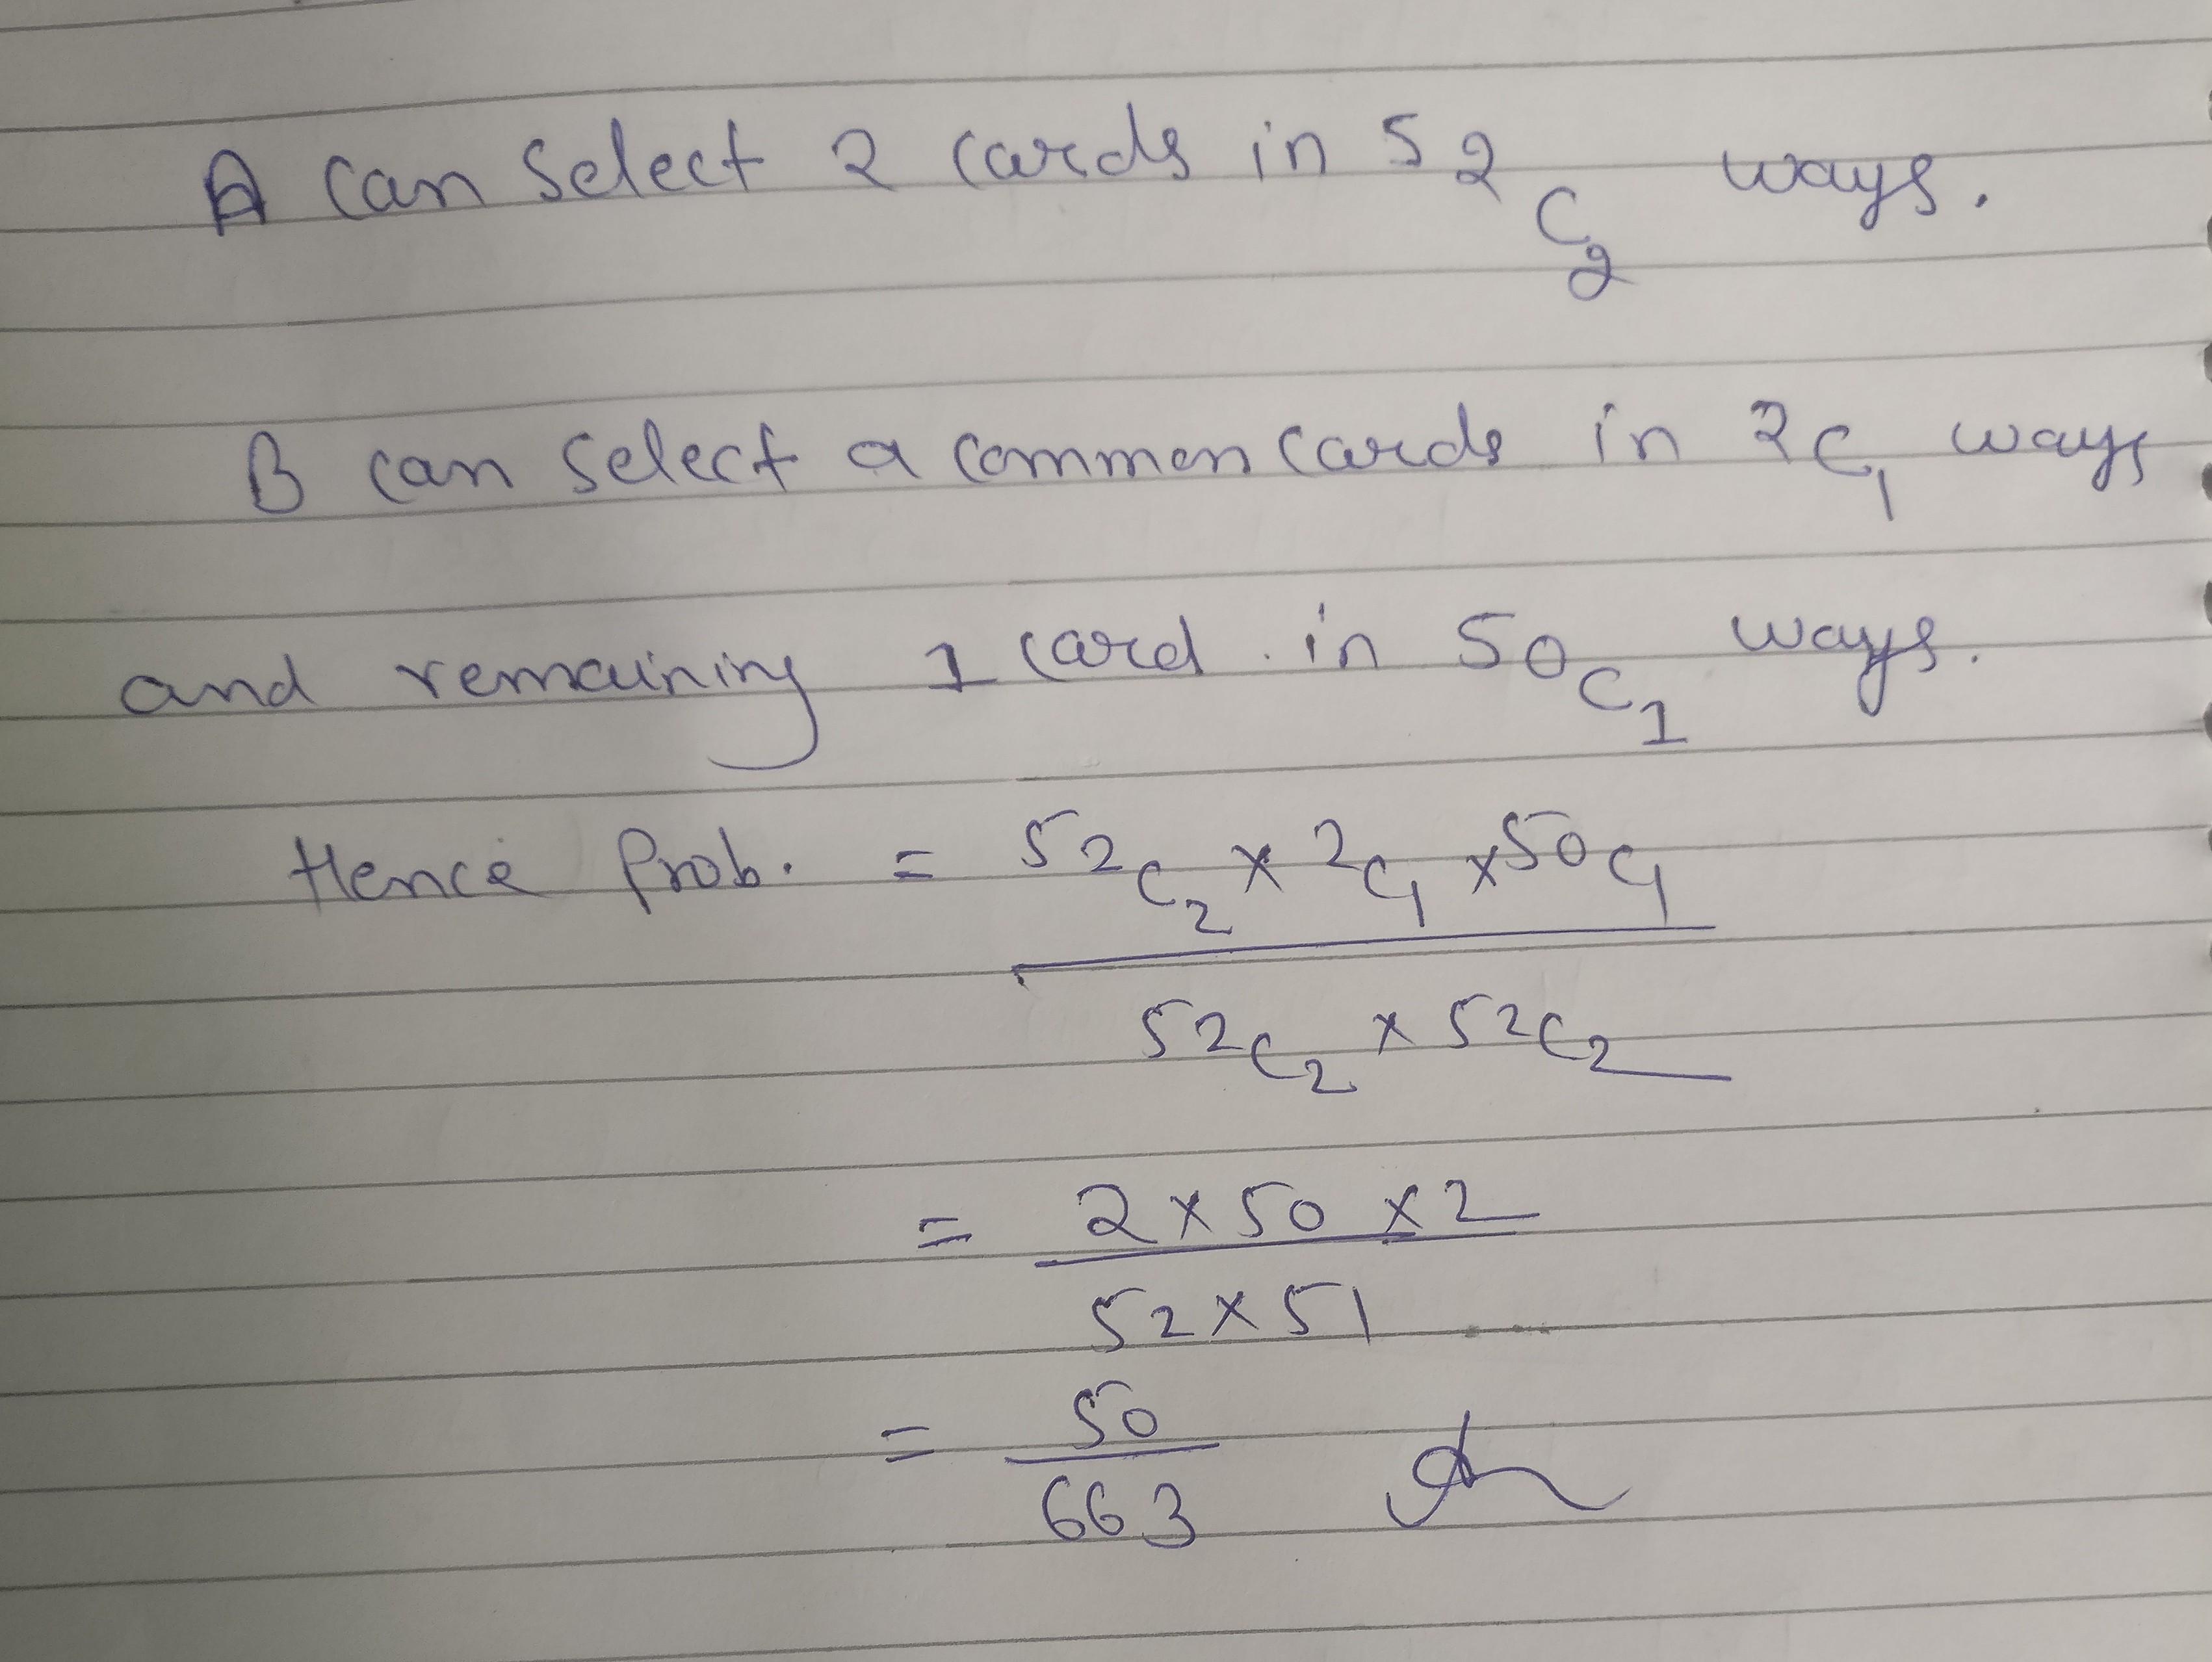 A can select 2 cards in 52C2 ways.
B can select a common cards in 2C1 ways
and remaining 1 card in 50C1 ways.
Hence Prob. = 52C2 × 2C1 × 50C1
52C2 × 52C2
= 2 × 50 × 2
52 × 51
= 50
663